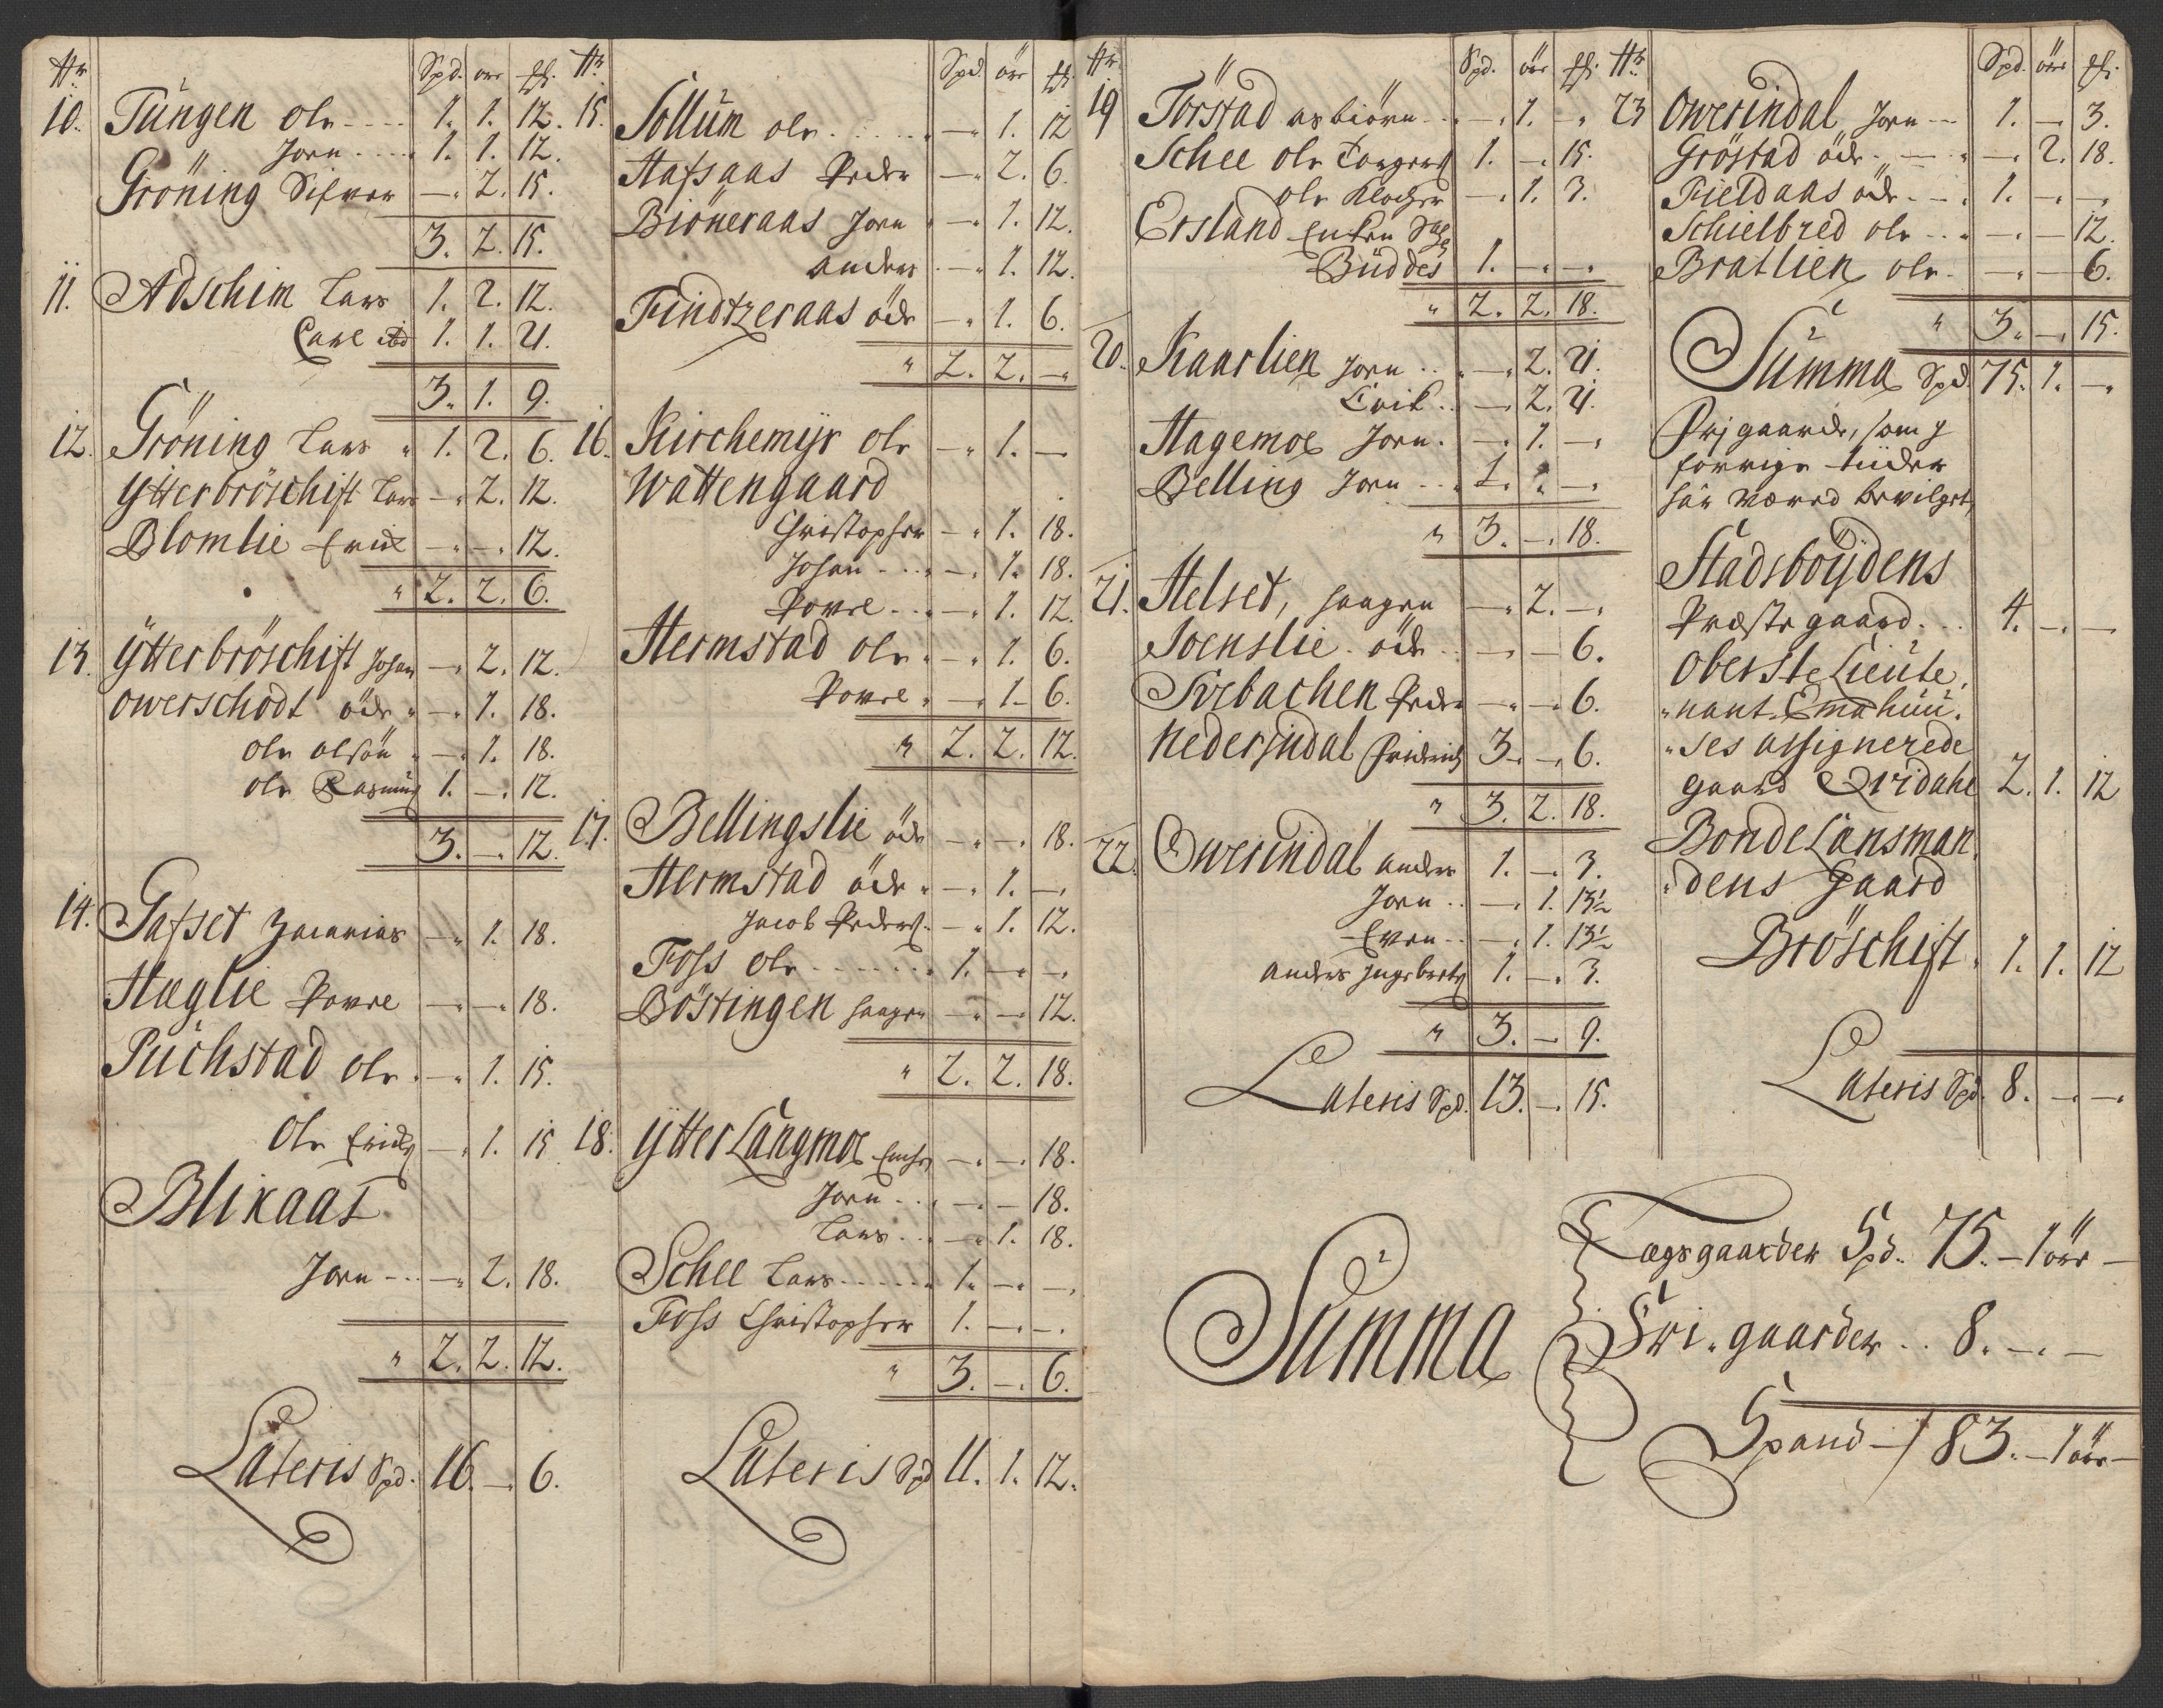 Nr Spd. ører ſſ.
10. Tüngen ole - - - 1. 1. 12.
Jorn - - - 1. 1. 12.
Gröning Sifver — 2. 15.
3. 2. 15.
11. Adschim Lars 1. 2. 12.
Carl 1. 1. 21.
3. 1. 9.
12. Gröning Lars " 1. 2. 6.
ÿtterbröschift Lars — 2. 12.
Blomlie Erich — — 12.
" 2. 2. 6.
13. ÿtterbröschift Johan — 2. 12.
owerschodt öde — 1. 18.
ole olsön — 1. 18.
ole Rasmus 1. — 12.
3. — 12.
14. Gafset Zacarias — 1. 18.
Hæglie Povel — — 18.
Püchstad ole — 1. 15.
Ole Erichs — 1. 15
Blikaas
Jorn - - — 2. 18.
" 2. 2. 12.
Lateris Spd. 16. — 6.
Nr Spd. ører ſſ.
15. Sollüm ole - - - — 1. 12
Hafsaas Peder — 2. 6.
Biöneraas Jorn — 1. 12.
anders — 1. 12.
Findtzeraas öde — 1. 6.
" 2. 2. —
16. Kirchemÿr ole — 1. —
Wattengaard
Christopher — 1. 18.
Johan - - — 1. 18.
Povel - - — 1. 12.
Hermstad ole — 1. 6.
Povel — 1 — 6.
" 2. 2. 12.
17. Bellingslie öde — — 18.
Hermstad öde — 1. —
Jacob Peders. — 1. 12.
Foss Ole - - - 1. — —
Böstingen haagen — — 12.
" 2. 2. 18.
18. ÿtter Langmoe — — 18.
Jorn - - — — 18.
Lars - — 1. 18.
Schee Lars - - - 1. — —
Foss Christopher 1. — —
" 3. — 6.
Lateris Spd 11. 1. 12.
Nr Spd. ører ſſ.
19 Törstad asbiörn - — 1. —
Schee ole Torgers 1. — 15.
ole Klocher — 1. 3.
Ersland Enken
Büddes 1. — —
" 2. 2. 18.
20. Kaarlien Jorn - - — 2. 21.
Erik - — 2. 21.
Hagemoe Jorn. — 1. —
Belling Jorn - - 1. — —
" 3. — 18.
21. Helset, haagen — 2. —
Joenslie öde - — — 6.
Sirbachen Peder — — 6.
Nederindal Fridrich 3 — 6.
" 3. 2. 18.
22. Owerindal anders 1. — 3.
Jorn - - — 1. 13½
Even - - — 1. 13½
anders Ingebrets 1. — 3.
" 3. — 9.
Lateris Spd. 13. — 15.
Nr Spd. ører ſſ.
23 Owerindal Jorn - - 1. — 3.
Gröstad öde - — 2. 18.
Fieldaas öde - - 1. — —
Schielbred ole - - — — 12.
Bratlien ole - — — 6.
" 3. — 15.
Summa Spd. 75. 1. —
Frj gaarde, som J
forrige tiider
har været bevilget,
Stadsboÿdens
Præste gaard. - 4. — —
Oberste Lieute,
"nant Emahüü.
"ses assignerede
gaard Qvidahl 2. 1. 12
Bonde Lænsman,
"dens Gaard
Bröschift. 1. 1. 12
Lateris Spd. 8. — —
Summa
Lægsgaarder Spd. 75. — 1 ører —
Fri. gaarder - - 8. — —
Spand — 83. — 1 ører —